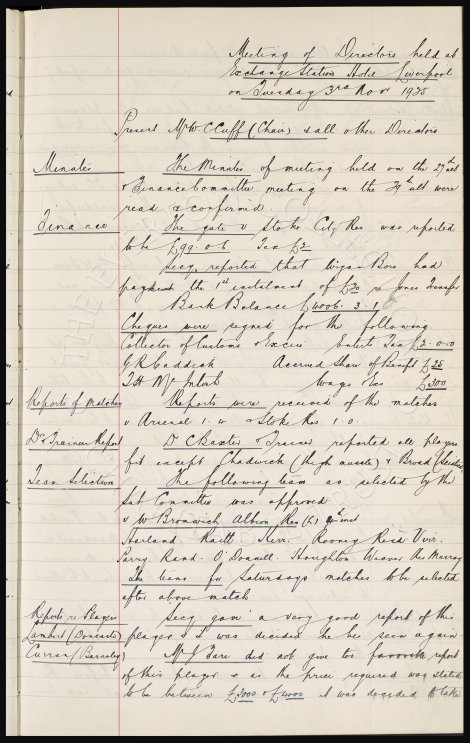 Meeting of Directors held at
Exchange Station Hotel Liverpool
on Tuesday 3rd Nov 1925
Present Mr W C Cuff (Chair) & all other Directors
Minutes The Minutes of meeting held on the 27th ult
& Finance Committee meeting on the ult were
read & confirmed.
Finance The gate v Stoke City Res was reported
to be £99. 0. 6 Tax £2
Secy. reported that Wigan Boro had
the 1st instalment of £ re Jones Transfer
Bank Balance £4006. 3. 1
Cheques were signed for the following
Collector of Customs & Excise Entert Tax £2-0-0
G R Caddick Accrued Share of Benefit £25
T H McIntosh Wages & Exs £300
Reports of Matches Reports were received of the matches
v Arsenal v Stoke Res 1. 0.
Dr & Trainer Report Dr C Baxter & Trainer reported all players
fit except Chadwick (thigh muscle) & Broad
Team Selection The following team as selected by the
Sub Committee was approved
v W Bromwich Albion Res (L)
Harland. Raitt. Kerr. Rooney Reid Virr.
Parry. Rand. O'Donnell. Houghton Weaver Res Murray
The team for Saturdays matches to be selected
after above match
Reports re Players Secy gave a very good report of this
Lambert (Doncaster) player & it was decided he be seen again
Curran (Barnsley) Mr J Fare did not give too favourable report
of this player & as the price required was stated
to be between £3000 & £4000 it was decided to take